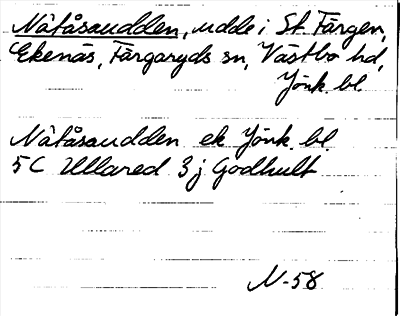 Nätåsaudden, udde i St. Färgen,
Ekenäs, Färgaryds sn, Västbo hd,
Jönk. bl.
Nätåsaudden ek Jönk. bl.
5C Ullared 3j Godhult
N-58